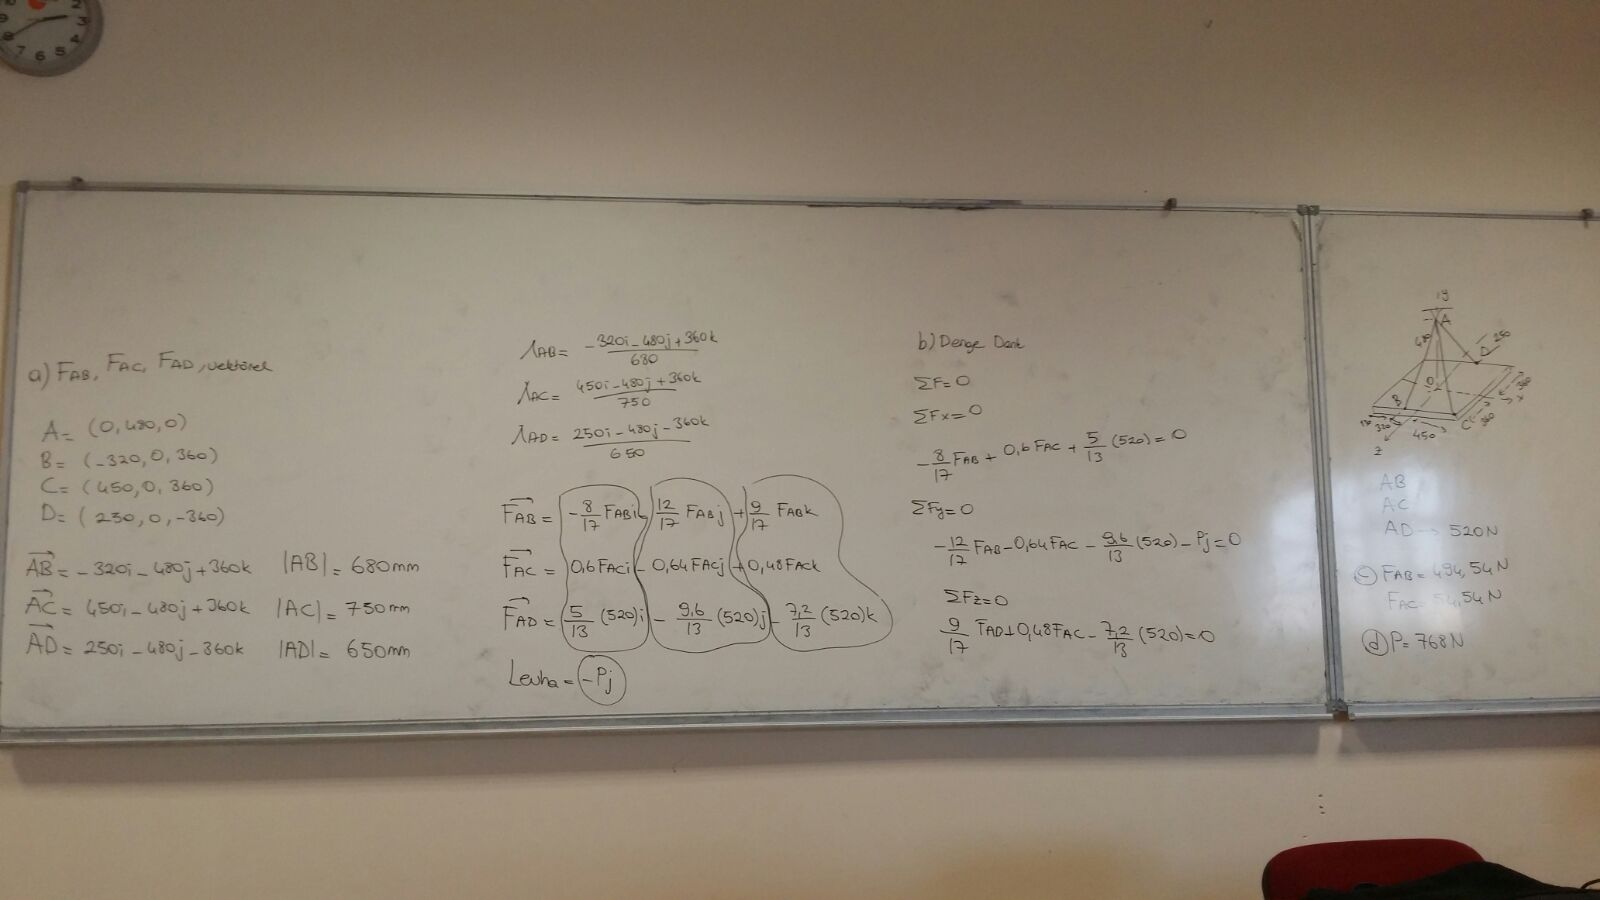 a) FAB, FAC, FAD, vektörel
A = (0,480,0)
B = (-320,0,360)
C = (450,0,360)
D = (250,0,-360)
AB = -320i - 480j + 360k |AB| = 680mm
AC = 450i - 480j + 360k |AC| = 750mm
AD = 250i - 480j - 360k |AD| = 650mm
λAB = -320i - 480j + 360k / 680
λAC = 450i - 480j + 360k / 750
λAD = 250i - 480j - 360k / 650
FAB = -8/17 FABi - 12/17 FABj + 9/17 FABk
FAC = 0,6 FACi - 0,64 FACj + 0,48 FACk
FAD = 5/13 (520)i - 9,6/13 (520)j - 7,2/13 (520)k
Levha = -Pj
b) Denge Denk
ΣF = 0
ΣFx = 0
-8/17 FAB + 0,6 FAC + 5/13 (520) = 0
ΣFy = 0
-12/17 FAB - 0,64 FAC - 9,6/13 (520) - Pj = 0
ΣFz = 0
9/17 FAD + 0,48 FAC - 7,2/13 (520) = 0
y
A
480
250
D
O
x
B
C
360
320
450
z
AB
AC
AD → 520N
c) FAB = 494,54N
FAC = 54,54N
d) P = 768N
2
3
4
5
6
7
8
9